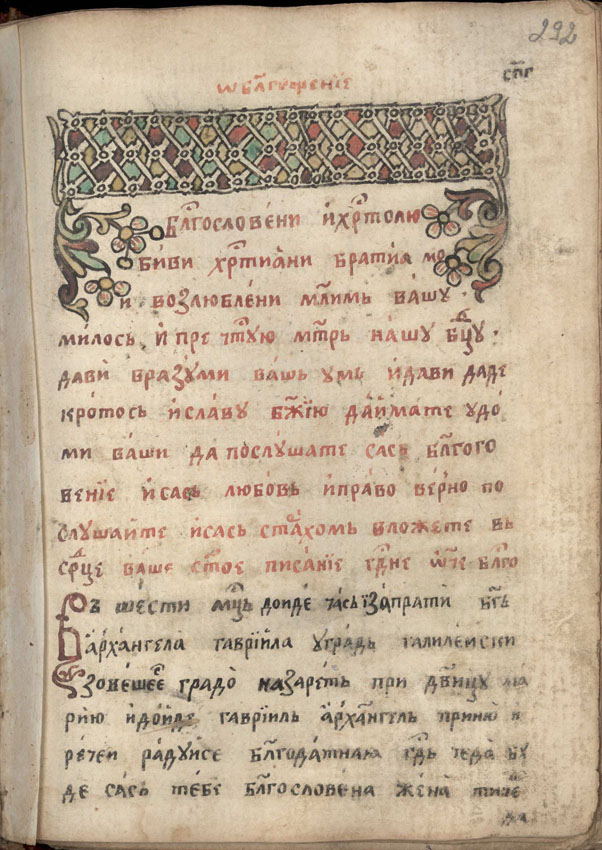 292
спг
ѡ бл҃гꙋвѣренїе
Бл҃гословени и хр҃толю
биви хр҃тиѧни братиѧ мо
и возлюблени м҃лимь вашу
милось, и пре ч҃тую м҃трь нашу бц҃у
дави вразуми вашь умь и дави даде
кротось и славу бж҃їю да имате удо
ми ваши да послушате сась бл҃гого
венїе и сась любовь и право верно по
слушаите и сась страхомь вложете вь
ср҃це ваше ст҃ое писанїе гд҃не ѡч҃е бл҃го
Въ шести мц҃ь доиде тась изапрати бг҃ь
архангела гаврїила у градь галилеиски
зовешеесе градо назареть при дв҃ицу ма
рию и доиде гаврїиль архангель при нею и
речеи радуисе благодатнаю гд҃ь теда бу
де сась тебе бл҃гословена жена ти̑е